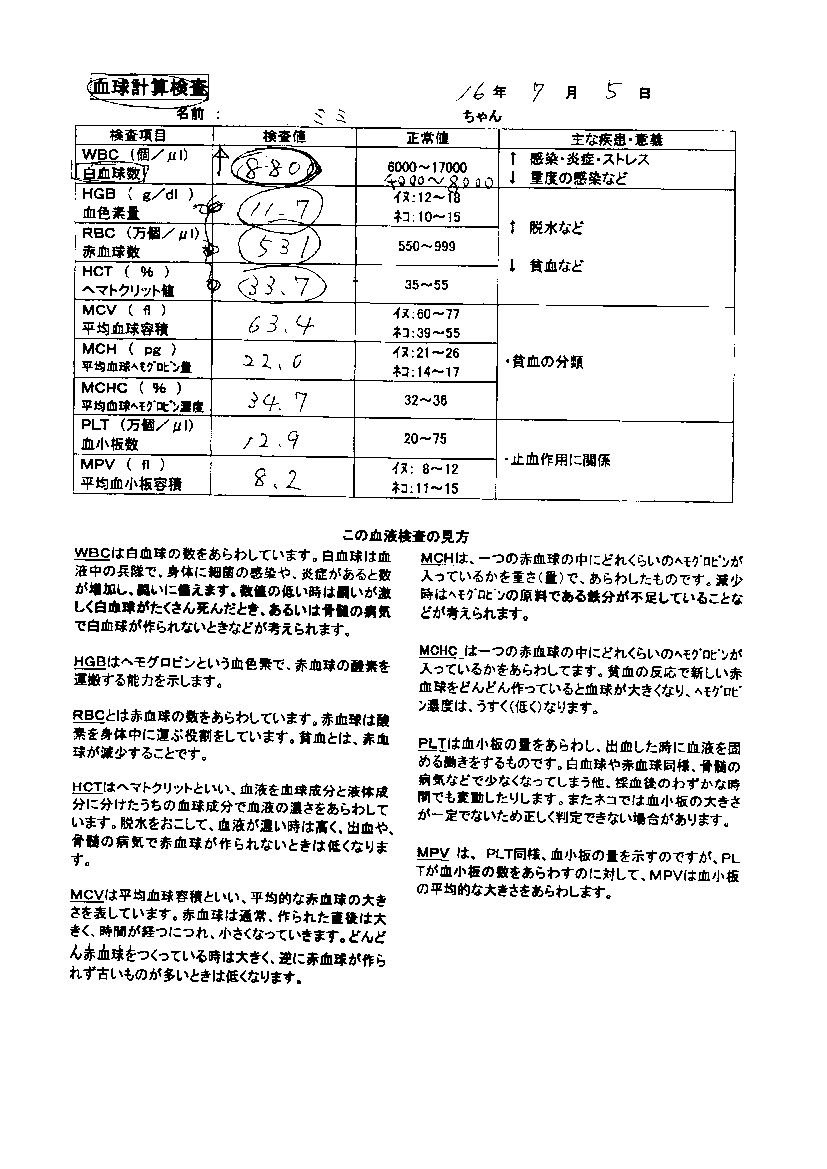 血球計算検査
16年 7月 5日
名前 : ミミ ちゃん
検査項目 検査値 正常値 主な疾患・意義
WBC (個/μl) ↑ 8800 6000～17000 ↑ 感染・炎症・ストレス
白血球数 4000～8000 ↓ 重度の感染など
HGB ( g/dl ) 11.7 イヌ:12～18
血色素量 ネコ:10～15
↑ 脱水など
RBC (万個/μl) 531 550～999
赤血球数
↓ 貧血など
HCT ( % ) 33.7 35～55
ヘマトクリット値
MCV ( fl ) 63.4 イヌ:60～77
平均血球容積 ネコ:39～55
MCH ( pg ) 22.0 イヌ:21～26 ・貧血の分類
平均血球ヘモグロビン量 ネコ:14～17
MCHC ( % ) 34.7 32～36
平均血球ヘモグロビン濃度
PLT (万個/μl) 12.9 20～75
血小板数
・止血作用に関係
MPV ( fl ) 8.2 イヌ: 8～12
平均血小板容積 ネコ:11～15
この血液検査の見方
WBCは白血球の数をあらわしています。白血球は血
液中の兵隊で、身体に細菌の感染や、炎症があると数
が増加し、闘いに備えます。数値の低い時は闘いが激
しく白血球がたくさん死んだとき、あるいは骨髄の病気
で白血球が作られないときなどが考えられます。
HGBはヘモグロビンという血色素で、赤血球の酸素を
運搬する能力を示します。
RBCとは赤血球の数をあらわしています。赤血球は酸
素を身体中に運ぶ役割をしています。貧血とは、赤血
球が減少することです。
HCTはヘマトクリットといい、血液を血球成分と液体成
分に分けたうちの血球成分で血液の濃さをあらわして
います。脱水をおこして、血液が濃い時は高く、出血や、
骨髄の病気で赤血球が作られないときは低くなりま
す。
MCVは平均血球容積といい、平均的な赤血球の大き
さを表しています。赤血球は通常、作られた直後は大
きく、時間が経つにつれ、小さくなっていきます。どんど
ん赤血球をつくっている時は大きく、逆に赤血球が作ら
れず古いものが多いときは低くなります。
MCHは、一つの赤血球の中にどれくらいのヘモグロビンが
入っているかを重さ(量)で、あらわしたものです。減少
時はヘモグロビンの原料である鉄分が不足していることな
どが考えられます。
MCHC は一つの赤血球の中にどれくらいのヘモグロビンが
入っているかをあらわしてます。貧血の反応で新しい赤
血球をどんどん作っていると血球が大きくなり、ヘモグロビ
ン濃度は、うすく(低く)なります。
PLTは血小板の量をあらわし、出血した時に血液を固
める働きをするものです。白血球や赤血球同様、骨髄の
病気などで少なくなってしまう他、採血後のわずかな時
間でも変動したりします。またネコでは血小板の大きさ
が一定でないため正しく判定できない場合があります。
MPV は、PLT同様、血小板の量を示すのですが、PL
Tが血小板の数をあらわすのに対して、MPVは血小板
の平均的な大きさをあらわします。